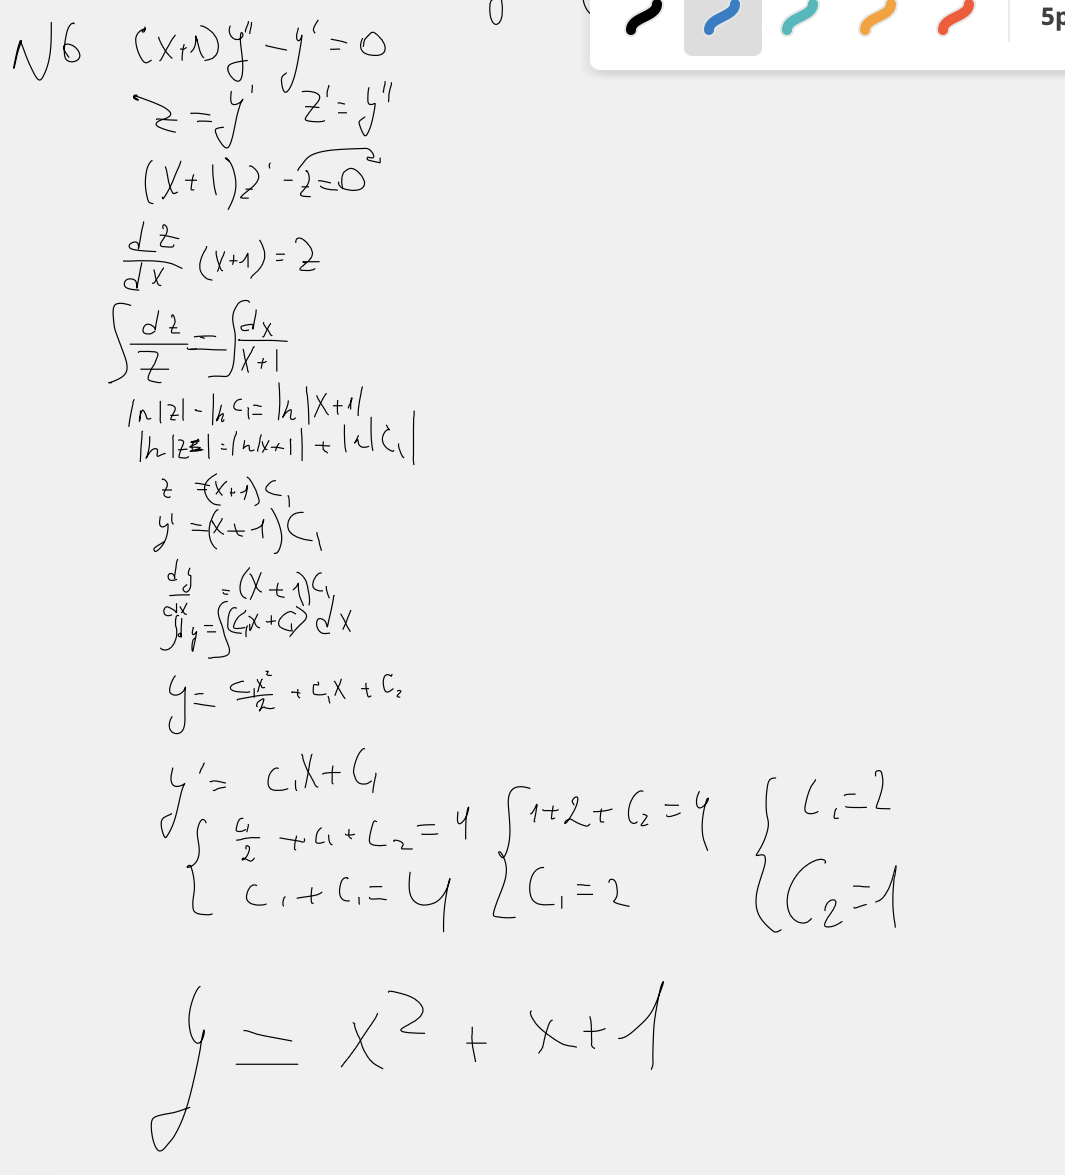 N6 (x+1)y'' - y' = 0
5p
z = y' z' = y''
(x+1)z' - z = 0
dz/dx (x+1) = z
∫ dz/z = ∫ dx/(x+1)
ln|z| - ln C₁ = ln|x+1|
ln|z| = ln|x+1| + ln|C₁|
z = (x+1)C₁
y' = (x+1)C₁
dy/dx = (x+1)C₁
∫dy = ∫(C₁x+C₁)dx
y = C₁x²/2 + C₁x + C₂
y' = C₁x + C₁
{ C₁/2 + C₁ + C₂ = 4 { 1+2+C₂ = 4 { C₁ = 2
C₁ + C₁ = 4 C₁ = 2 C₂ = 1
y = x² + x + 1